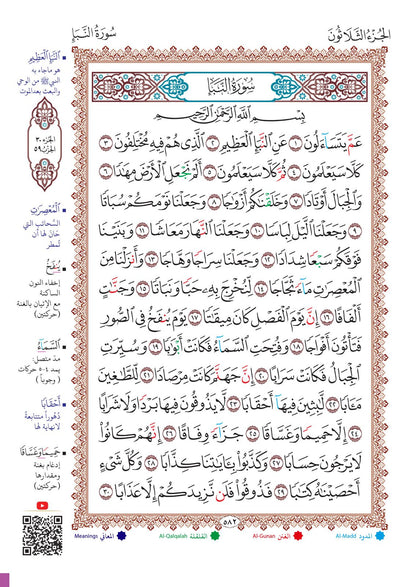 الجُزءُ الثَّلَاثُونَ
سُورَةُ النَّبَإِ
سُورَةُ النَّبَإِ
بِسْمِ اللَّهِ الرَّحْمَٰنِ الرَّحِيمِ
عَمَّ يَتَسَاءَلُونَ ١ عَنِ النَّبَإِ الْعَظِيمِ ٢ الَّذِي هُمْ فِيهِ مُخْتَلِفُونَ ٣
كَلَّا سَيَعْلَمُونَ ٤ ثُمَّ كَلَّا سَيَعْلَمُونَ ٥ أَلَمْ نَجْعَلِ الْأَرْضَ مِهَادًا ٦
وَالْجِبَالَ أَوْتَادًا ٧ وَخَلَقْنَاكُمْ أَزْوَاجًا ٨ وَجَعَلْنَا نَوْمَكُمْ سُبَاتًا
٩ وَجَعَلْنَا اللَّيْلَ لِبَاسًا ١٠ وَجَعَلْنَا النَّهَارَ مَعَاشًا ١١ وَبَنَيْنَا
فَوْقَكُمْ سَبْعًا شِدَادًا ١٢ وَجَعَلْنَا سِرَاجًا وَهَّاجًا ١٣ وَأَنزَلْنَا مِنَ
الْمُعْصِرَاتِ مَاءً ثَجَّاجًا ١٤ لِّنُخْرِجَ بِهِ حَبًّا وَنَبَاتًا ١٥ وَجَنَّاتٍ
أَلْفَافًا ١٦ إِنَّ يَوْمَ الْفَصْلِ كَانَ مِيقَاتًا ١٧ يَوْمَ يُنفَخُ فِي الصُّورِ
فَتَأْتُونَ أَفْوَاجًا ١٨ وَفُتِحَتِ السَّمَاءُ فَكَانَتْ أَبْوَابًا ١٩ وَسُيِّرَتِ
الْجِبَالُ فَكَانَتْ سَرَابًا ٢٠ إِنَّ جَهَنَّمَ كَانَتْ مِرْصَادًا ٢١ لِّلطَّاغِينَ
مَآبًا ٢٢ لَّابِثِينَ فِيهَا أَحْقَابًا ٢٣ لَّا يَذُوقُونَ فِيهَا بَرْدًا وَلَا شَرَابًا
٢٤ إِلَّا حَمِيمًا وَغَسَّاقًا ٢٥ جَزَاءً وِفَاقًا ٢٦ إِنَّهُمْ كَانُوا
لَا يَرْجُونَ حِسَابًا ٢٧ وَكَذَّبُوا بِآيَاتِنَا كِذَّابًا ٢٨ وَكُلَّ شَيْءٍ
أَحْصَيْنَاهُ كِتَابًا ٢٩ فَذُوقُوا فَلَن نَّزِيدَكُمْ إِلَّا عَذَابًا ٣٠
٥٨٢
النَّبَإِ الْعَظِيمِ
هو ما جاء به
النبي ﷺ من الوحي
والبعث بعد الموت
الجزء ٣٠
الحزب ٥٩
الْمُعْصِرَاتِ
السحائب التي
حان لها أن
تُمطر
يُنفَخُ
إخفاء النون
الساكنة
مع الإتيان بالغنة
(حركتين)
السَّمَاءُ
مدّ متصل:
يمد ٤-٥ حركات
(وجوباً)
أَحْقَابًا
دُهوراً متتابعةً
لا نهاية لها
حَمِيمًا وَغَسَّاقًا
إدغام بغنة
ومقدارها
(حركتين)
المدود Al-Madd
الغنن Al-Gunan
القلقلة Al-Qalqalah
المعاني Meanings